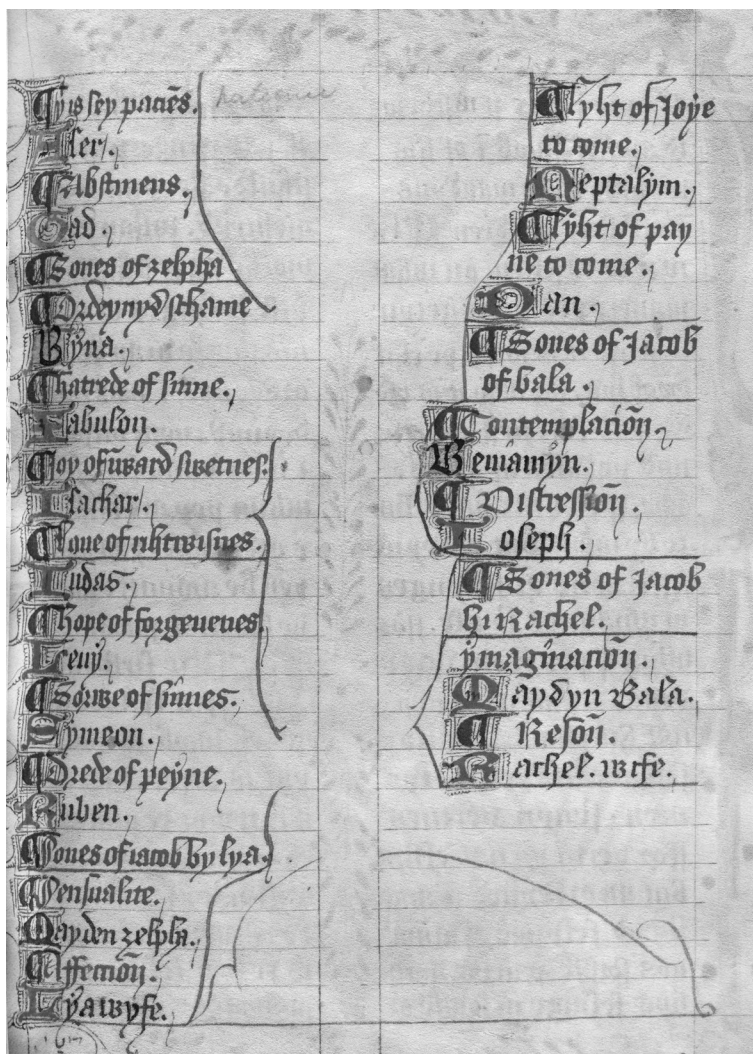 Þis ſey paciēs.
Aſer.
Abſtinens.
Gad.
Sones of zelpha
Ordeynyd ſchame
Dyna.
hatrede of ſinne.
Zabulon.
Joy of īward ſwetnes.
Iſachar.
loue of rihtwiſnes.
Iudas.
hope of forgeuenes.
Leuy.
Sorwe of ſinnes.
Symeon.
Drede of peyne.
Ruben.
Sones of iacob by lya.
Senſualite.
Mayden zelpha.
Affecciōn.
Lya wyfe.
Syht of Joye
to come.
Neptalym.
Syht of pay
ne to come.
Dan.
Sones of Jacob
of bala.
Contemplaciōn
Beniamyn.
Discreſſiōn.
Ioseph.
Sones of Jacob
bi Rachel.
ymaginaciōn.
Maydyn Bala.
Reſōn.
Rachel. wife.